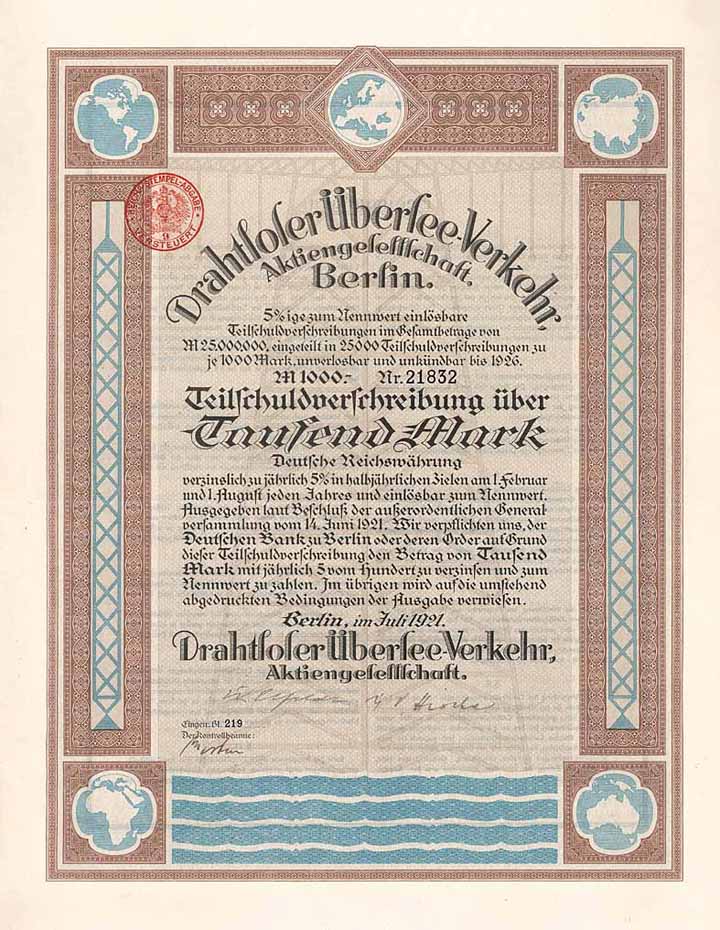 REICHSSTEMPEL-ABGABE
9
VERSTEUERT
Drahtloser Übersee-Verkehr,
Aktiengesellschaft,
Berlin.
5%ige zum Nennwert einlösbare
Teilschuldverschreibungen im Gesamtbetrage von
M 25,000,000, eingeteilt in 25000 Teilschuldverschreibungen zu
je 1000 Mark, unverlosbar und unkündbar bis 1926.
M 1000.- Nr. 21832
Teilschuldverschreibung über
Tausend Mark
Deutsche Reichswährung
verzinslich zu jährlich 5% in halbjährlichen Zielen am 1. Februar
und 1. August jeden Jahres und einlösbar zum Nennwert.
Ausgegeben laut Beschluß der außerordentlichen General
versammlung vom 14. Juni 1921. Wir verpflichten uns, der
Deutschen Bank zu Berlin oder deren Order auf Grund
dieser Teilschuldverschreibung den Betrag von Tausend
Mark mit jährlich 5 vom Hundert zu verzinsen und zum
Nennwert zu zahlen. Im übrigen wird auf die umstehend
abgedruckten Bedingungen der Ausgabe verwiesen.
Berlin, im Juli 1921.
Drahtloser Übersee-Verkehr,
Aktiengesellschaft.
Eingetr. Bl. 219
Der Kontrollbeamte: